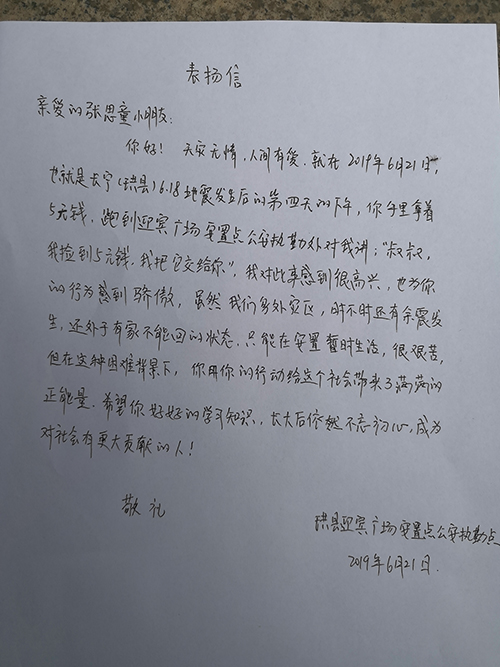 表扬信
亲爱的张思童小朋友：
你好！天灾无情，人间有爱。就在2019年6月21日，
也就是长宁（珙县）6.18地震发生后的第四天的下午，你手里拿着
5元钱，跑到迎宾广场安置点公安执勤处对我讲：“叔叔，
我捡到5元钱，我把它交给你”，我对此事感到很高兴，也为你
的行为感到骄傲，虽然我们身处灾区，时不时还有余震发
生，还处于有家不能回的状态，只能在安置暂时生活，很艰苦，
但在这种困难背景下，你用你的行动给这个社会带来了满满的
正能量。希望你好好的学习知识，长大后依然不忘初心，成为
对社会有更大贡献的人！
敬礼
珙县迎宾广场安置点公安执勤点
2019年6月21日.